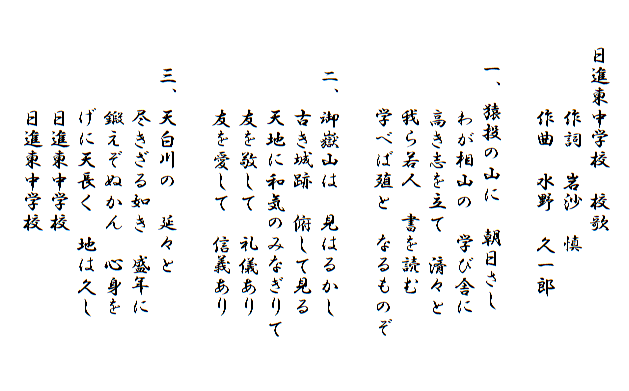 日進東中学校　校歌
作詞　岩沙　慎
作曲　水野　久一郎
一、猿投の山に　朝日さし
わが相山の　学び舎に
高き志を立て　済々と
我ら若人　書を読む
学べば殖と　なるものぞ
二、御嶽山は　見はるかし
古き城跡　俯して見る
天地に和気のみなぎりて
友を敬して　礼儀あり
友を愛して　信義あり
三、天白川の　延々と
尽きざる如き　盛年に
鍛えぞぬかん　心身を
げに天長く　地は久し
日進東中学校
日進東中学校